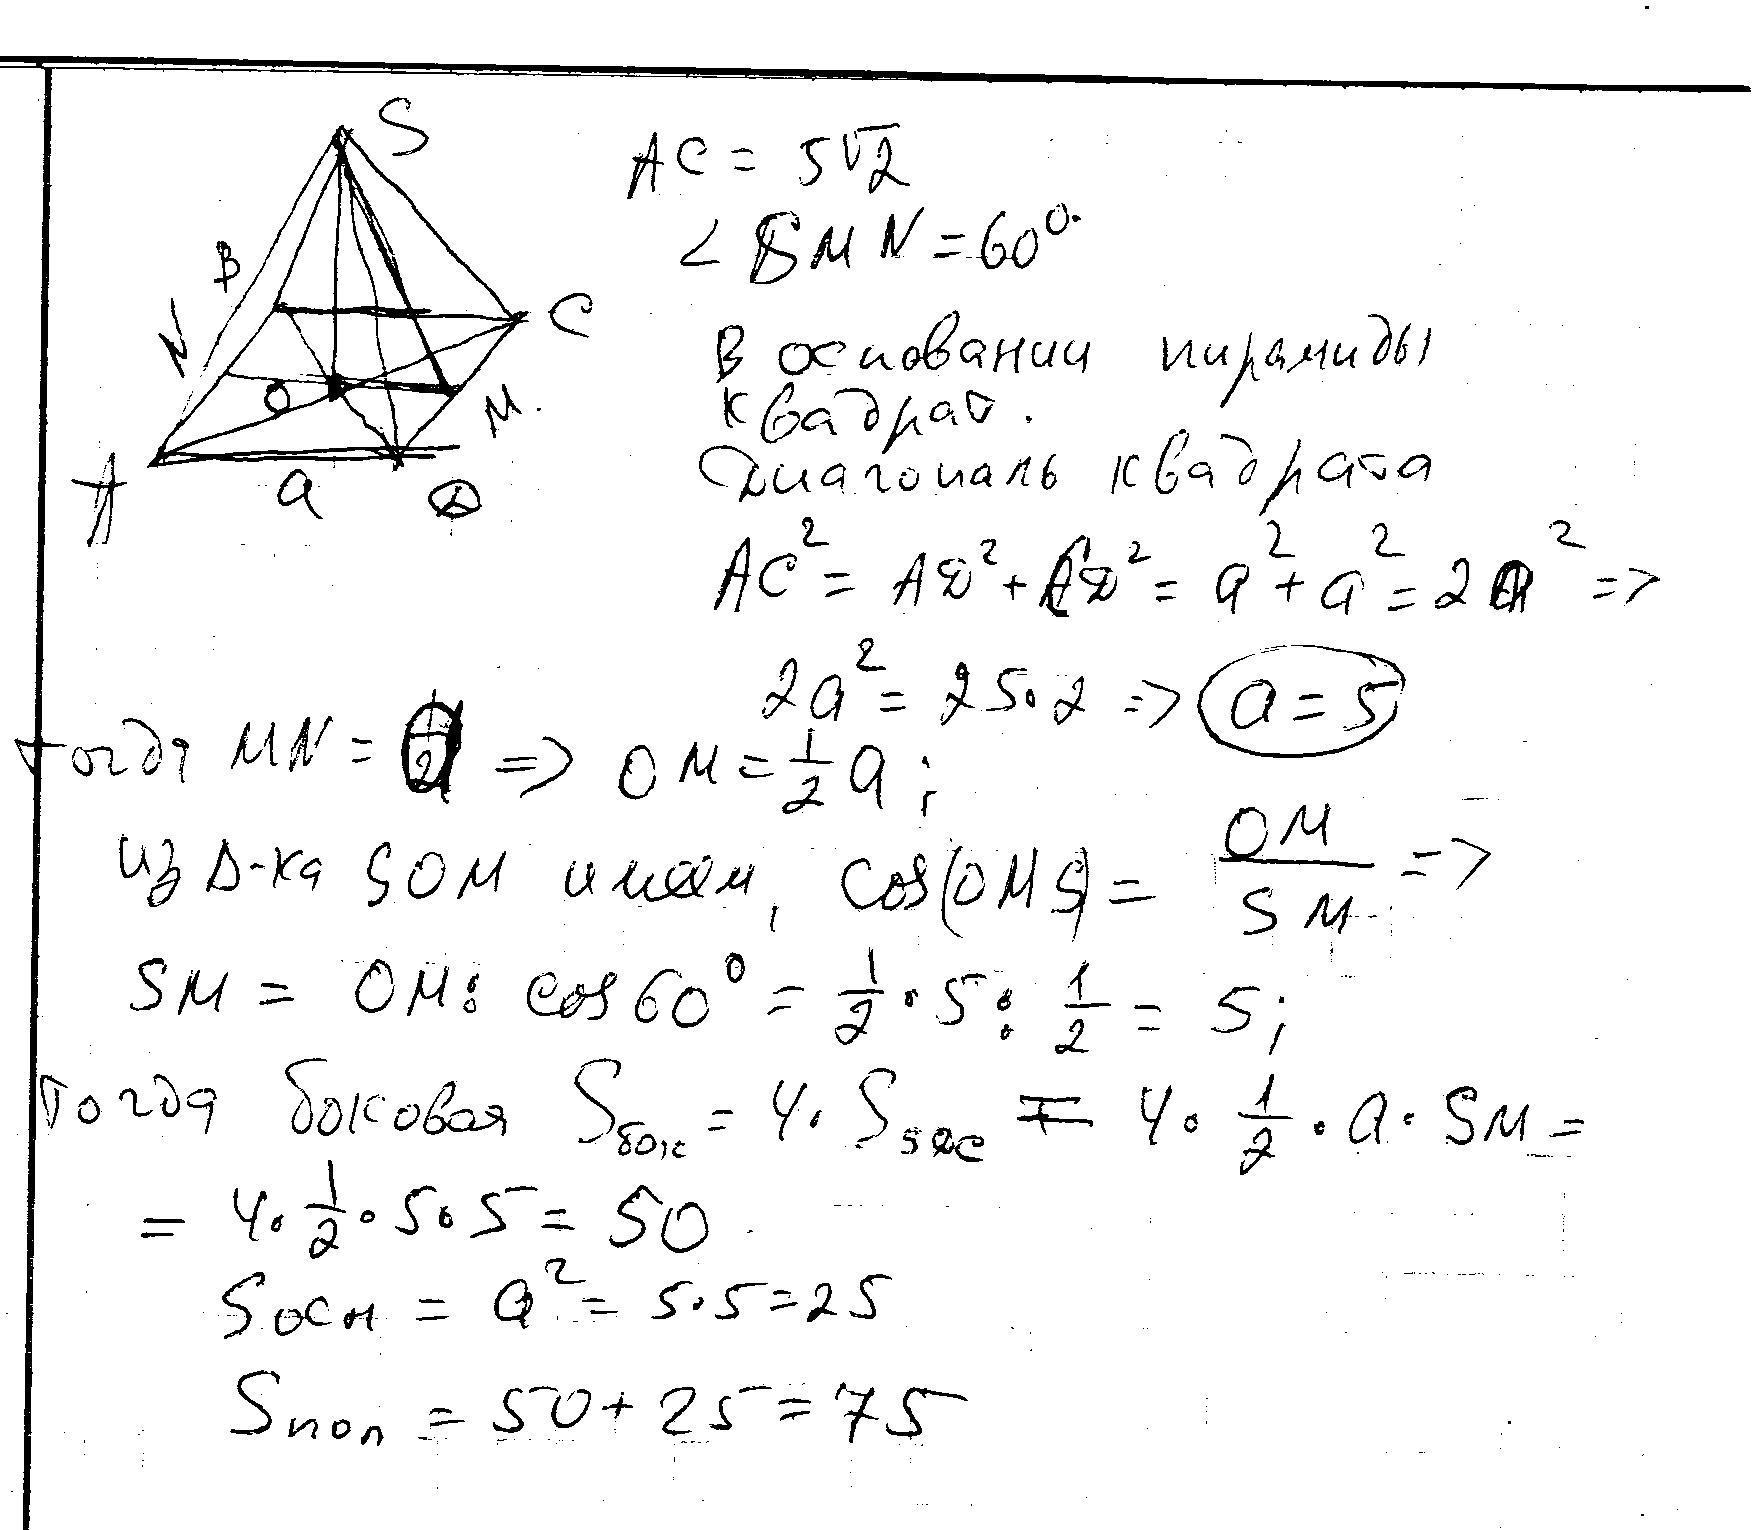 S
AC = 5√2
∠ SMN = 60°
B
C
N
O
M.
A
a
D
В основании пирамиды
квадрат.
Диагональ квадрата
AC² = AD² + CD² = a² + a² = 2a² =>
2a² = 25·2 => a = 5
тогда MN = a => OM = 1/2 a;
из Δ-ка SOM имеем, cos(OMS) = OM/SM =>
SM = OM : cos60° = 1/2 · 5 : 1/2 = 5;
Тогда боковая Sбок = 4 · SSDC = 4 · 1/2 · a · SM =
= 4 · 1/2 · 5 · 5 = 50
Sосн = a² = 5·5 = 25
Sпол = 50 + 25 = 75